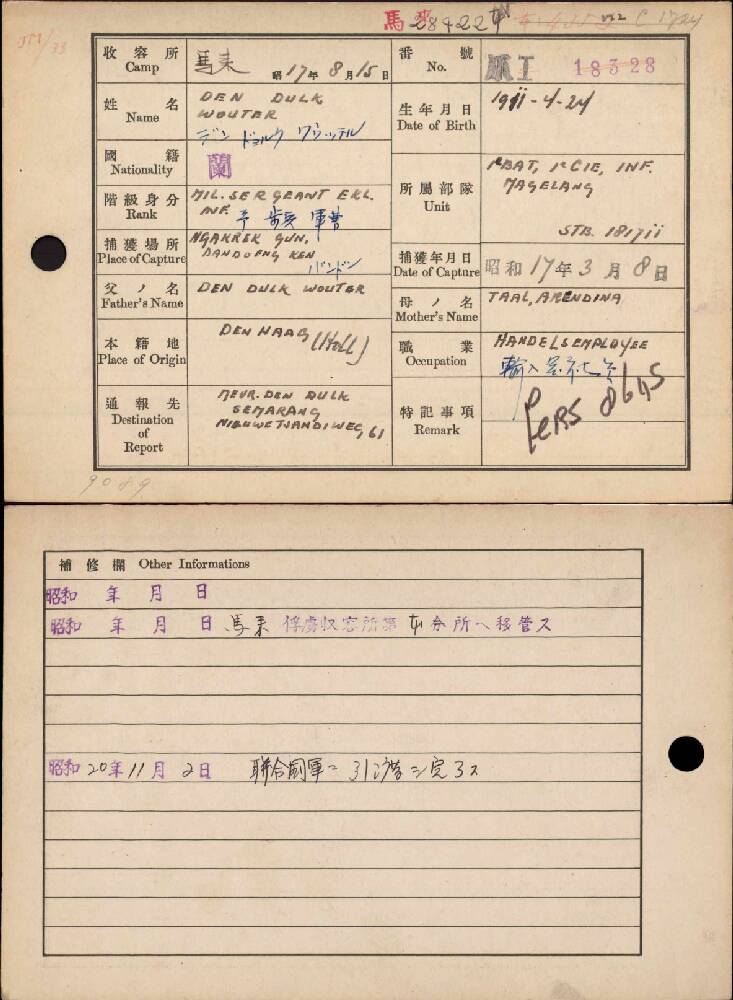 馬來 28422
C 1724
收容所 Camp 馬来 昭17年8月15日
番號 No. 爪I 18328
姓名 Name DEN DULK WOUTER
デン ドュルク ワウッテル
生年月日 Date of Birth 1911-4-24
國籍 Nationality 蘭
階級身分 Rank MIL. SERGEANT EKL. INF.
歩兵 軍曹
所屬部隊 Unit 1eBAT, 1eCIE, INF. MAGELANG
STB. 181711
捕獲場所 Place of Capture NGAKREK GUN, BANDOENG KEN
バンドン
捕獲年月日 Date of Capture 昭和17年3月8日
父ノ名 Father's Name DEN DULK WOUTER
母ノ名 Mother's Name TAAL, ARENDINA
本籍地 Place of Origin DEN HAAG (Holl)
職業 Occupation HANDELSEMPLOYEE
輸入
通報先 Destination of Report MEVR. DEN DULK
SEMARANG
NIEUWE TJANDIWEG, 61
特記事項 Remark
9089
補修欄 Other Informations
昭和 年 月 日
昭和 年 月 日 馬来俘虜収容所第 分所へ移管ス
昭和20年11月2日 聯合國軍ニ引渡シ完了ス